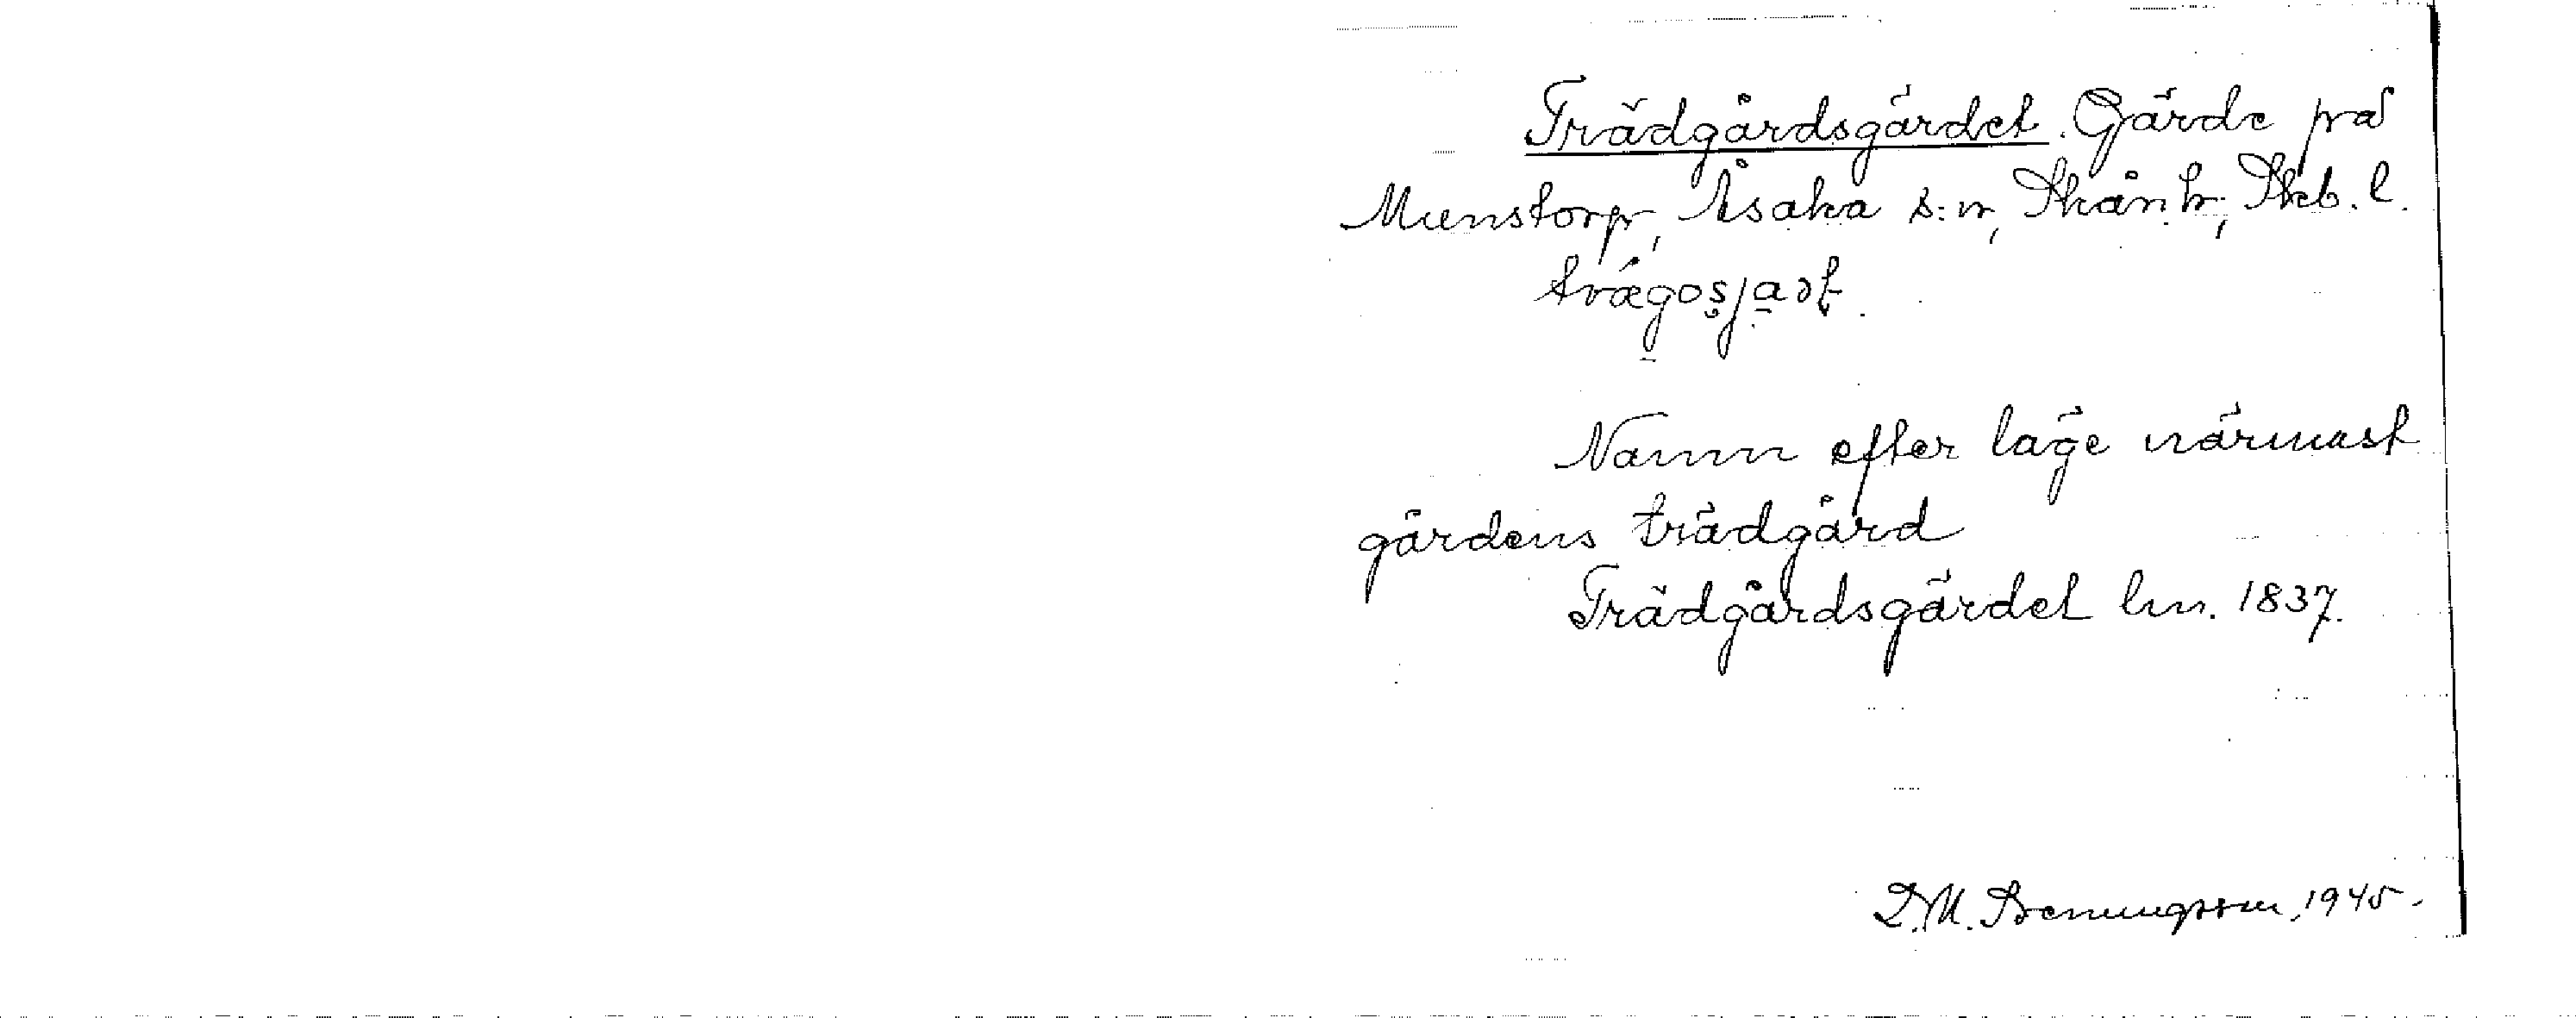 Trädgårdsgärdet. Gärde på
Munstorp, Åsaka s:n, Skån. h., Skb. l.
Namn efter läge närmast
gårdens trädgård
Trädgårdsgärdet lm. 1837.
D. M. 1945.